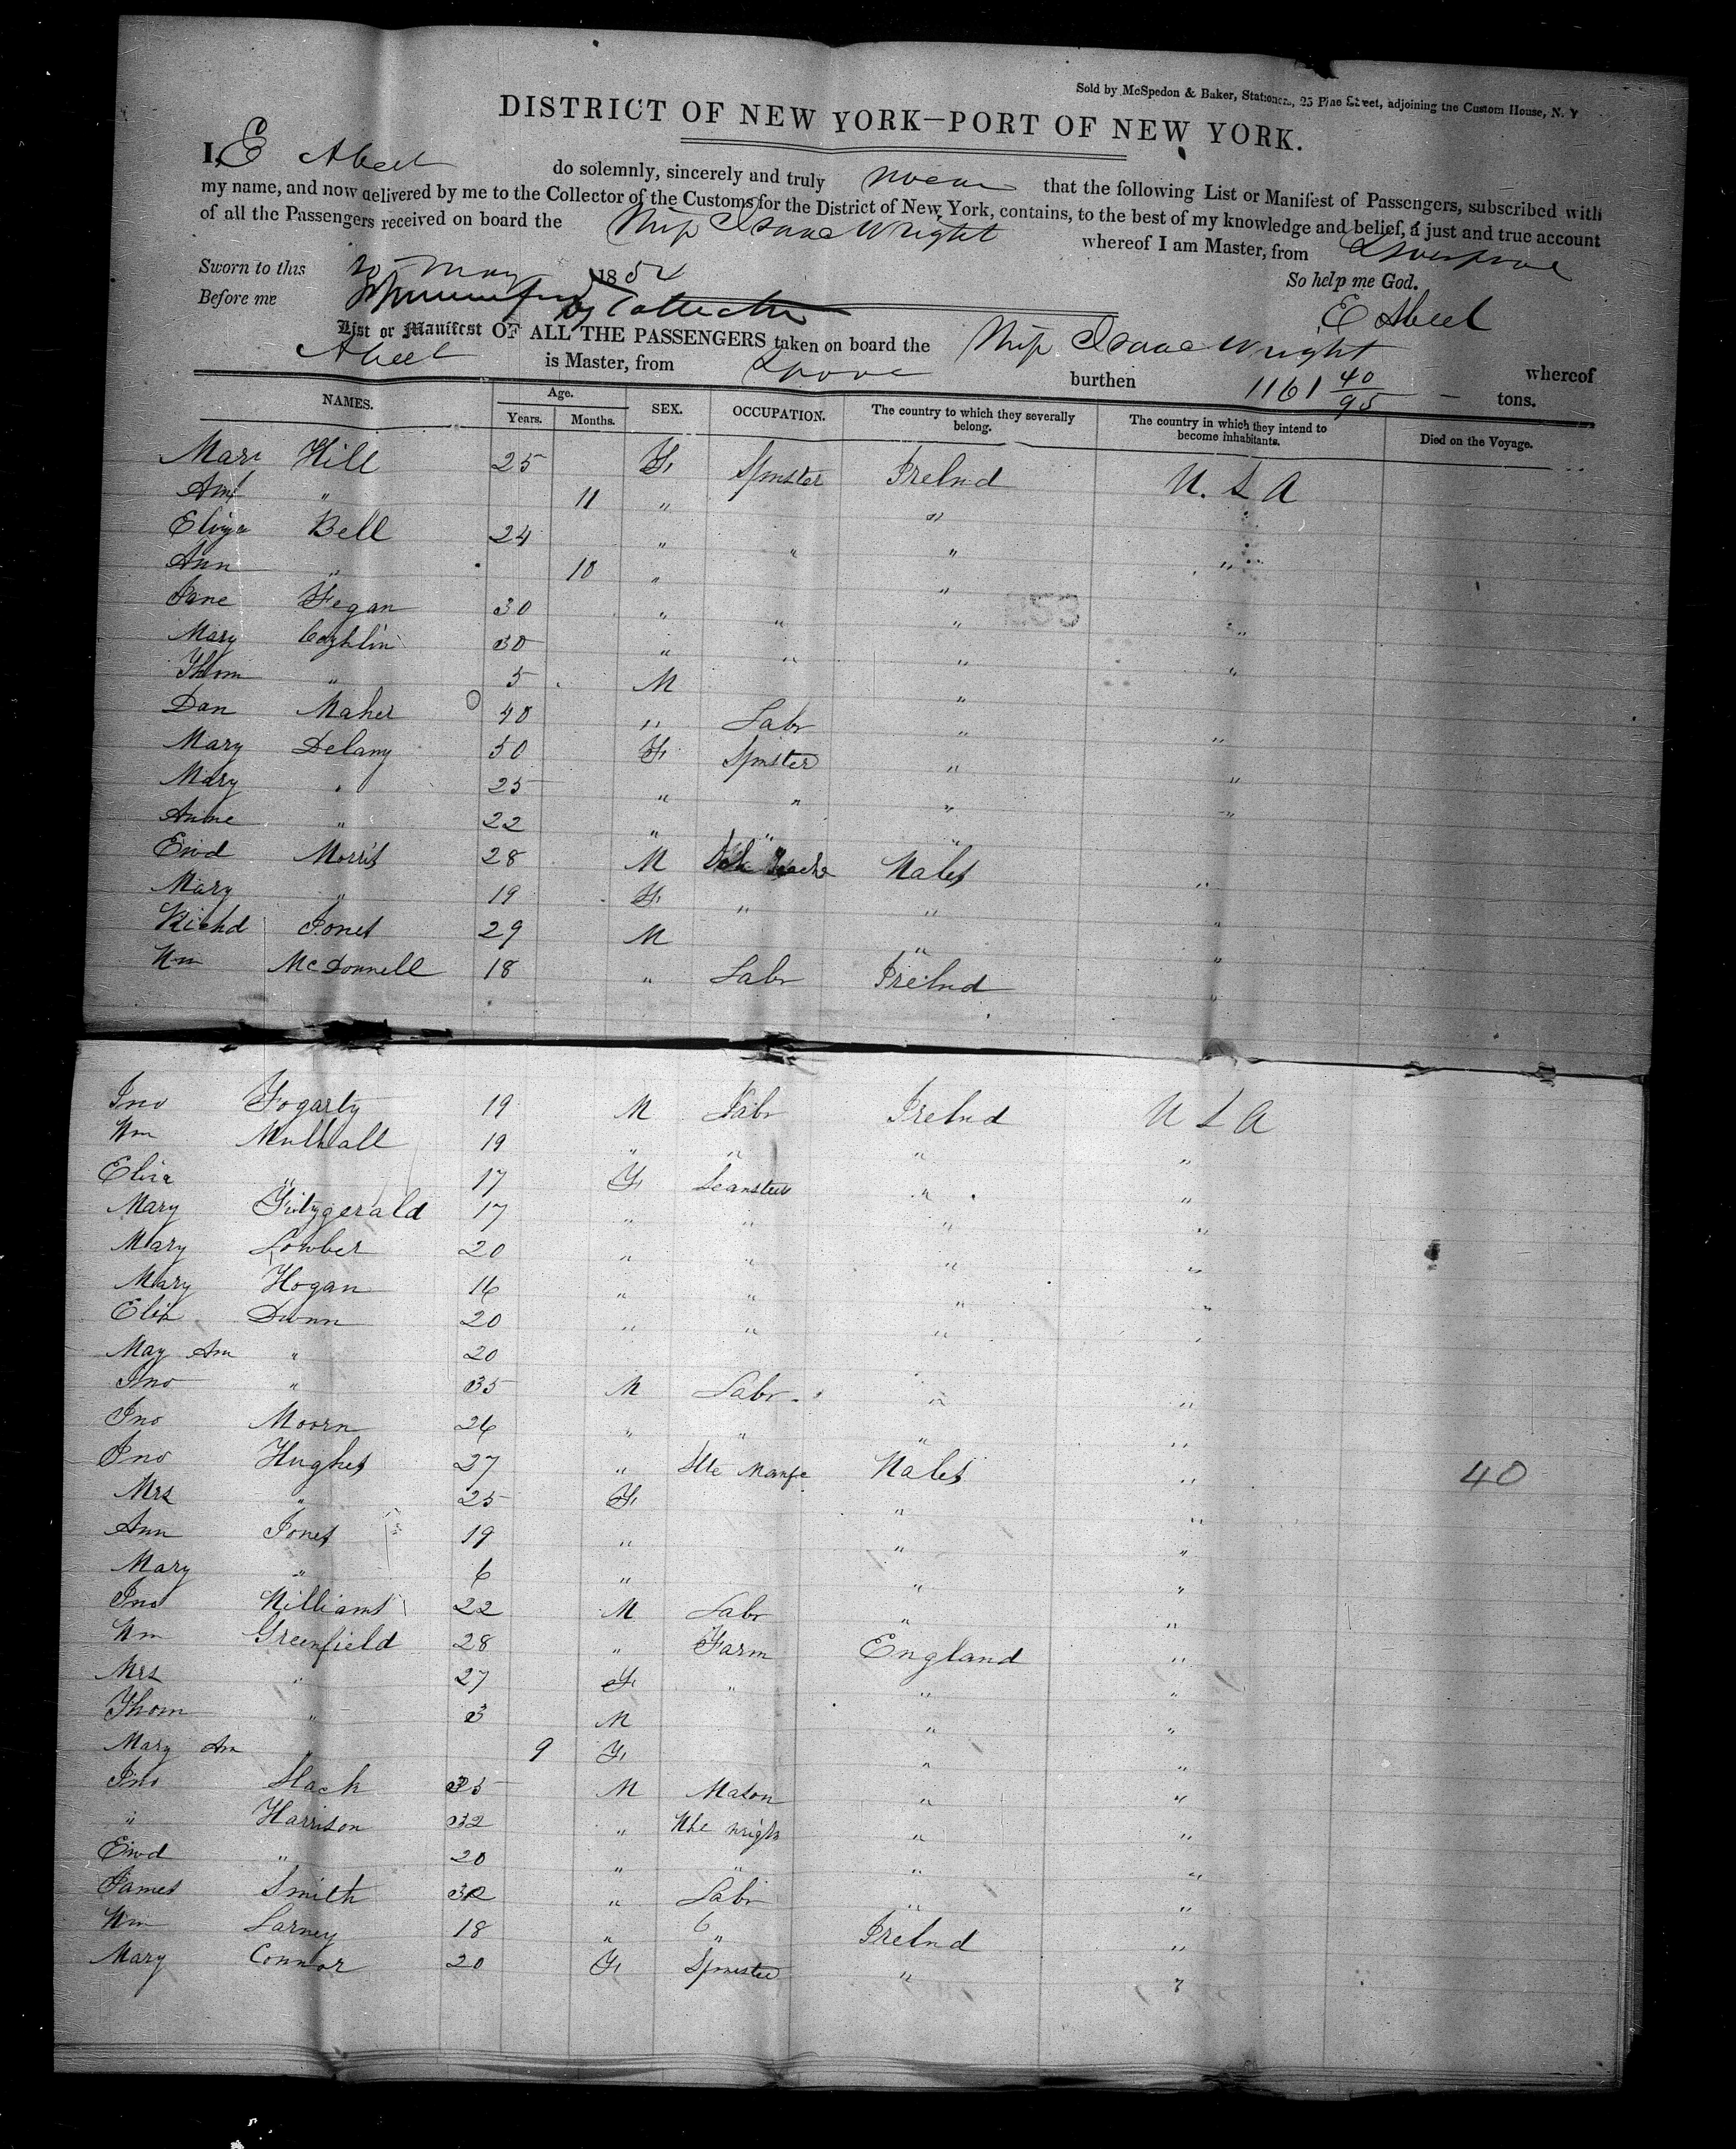 Sold by McSpedon & Baker, Stationers, 25 Pine Street, adjoining the Custom House, N. Y
DISTRICT OF NEW YORK—PORT OF NEW YORK.
I, E Abeel do solemnly, sincerely and truly swear that the following List or Manifest of Passengers, subscribed with
my name, and now delivered by me to the Collector of the Customs for the District of New York, contains, to the best of my knowledge and belief, a just and true account
of all the Passengers received on board the Ship Isaac Wright whereof I am Master, from Liverpool
Sworn to this 20 May 185 So help me God.
Before me Collector E Abeel
List or Manifest OF ALL THE PASSENGERS taken on board the Ship Isaac Wright whereof
Abeel is Master, from Lpool burthen 1161 40/95 tons.
NAMES. Age. Years. Months. SEX. OCCUPATION. The country to which they severally belong. The country in which they intend to become inhabitants. Died on the Voyage.
Mary Hill 25 F Spinster Irelnd U.S A
Ann " 11 " " "
Eliza Bell 24 " " " "
Ann " 10 " "
Jane Fegan 30 " " " "
Mary Coghlin 30 " " " "
Thom " 5 M "
Dan Maher 40 " Labr " "
Mary Delany 50 F Spinster " "
Mary " 25 " " " "
Anne " 22 " " "
Ewd Morris 28 M Wales "
Mary " 19 F " " "
Richd Jones 29 M " "
Wm McDonnell 18 " Labr Irelnd "
Jno Fogarty 19 M Labr Irelnd U S A
Wm Mulhall 19 " " " "
Eliza " 17 F " "
Mary Fitzgerald 17 " " " "
Mary Lowber 20 " " " "
Mary Hogan 16 " " " "
Eliz Dunn 20 " " " "
May An " 20
Jno " 35 M Labr " "
Jno Moorn 26 " " " "
Jno Hughes 27 " Wales " 40
Mrs " 25 F " "
Ann Jones 19 " " "
Mary " 6 " " "
Jno Williams 22 M Labr " "
Wm Greenfield 28 " Farm England "
Mrs " 27 F " " "
Thom " 3 M " "
Mary An " 9 F " "
Jno Slack 35 M Mason " "
" Harrison 32 " Whe wright " "
Ewd " 20 " " " "
James Smith 32 " Labr " "
Wm Larney 18 " " Irelnd "
Mary Connor 20 F Spinster " "